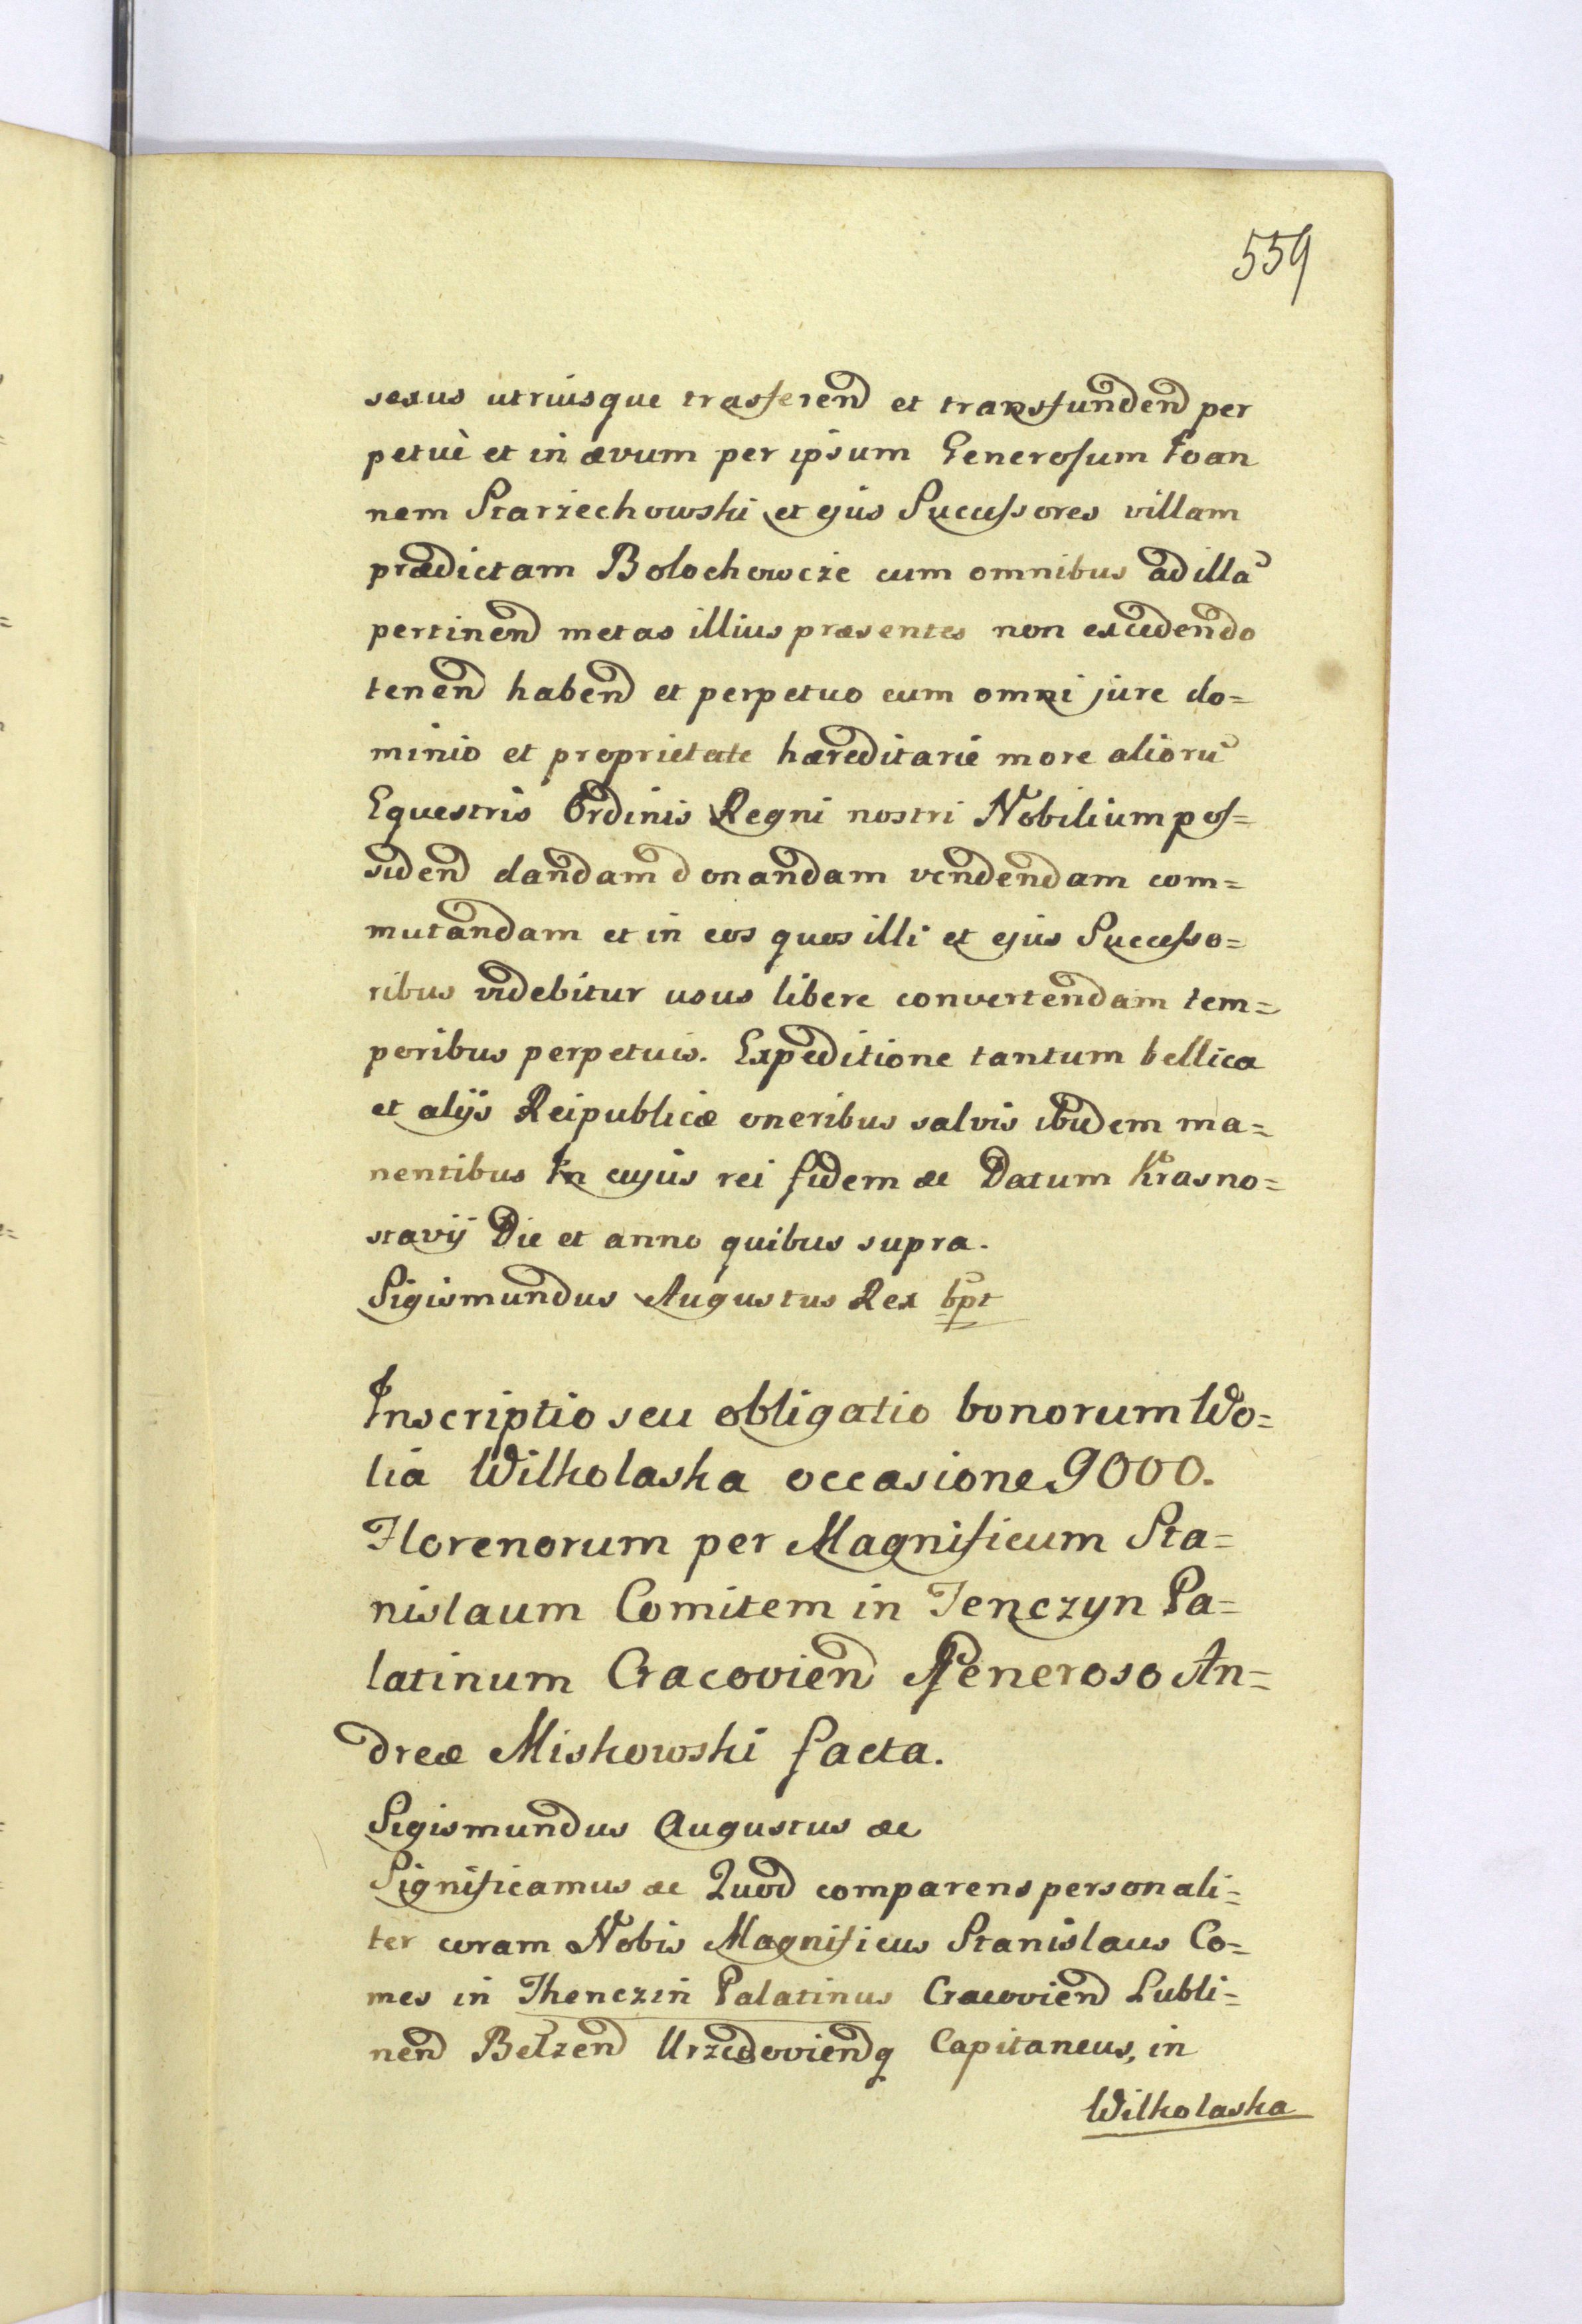 559
sexus utriusque trasferend et transfundend per
petuè et in ævum per ipsum Generosum Ioan
nem Starzechowski et ejus Successores villam
prædictam Bolochowcze cum omnibus ad illã
pertinend metas illius præsentes non excedendo
tenend habend et perpetuo cum omni jure do=
minio et proprietate hæreditarie more aliorũ
Equestris Ordinis Regni nostri Nobilium pos=
sidend dandam donandam vendendam com=
mutandam et in eos quos illi et ejus Successo=
ribus videbitur usus libere convertendam tem=
poribus perpetuis. Expeditione tantum bellica
et alijs Reipublicæ oneribus salvis ibidem ma=
nentibus In cujus rei fidem &c Datum Krasno=
stavij Die et anno quibus supra.
Sigismundus Augustus Rex bpt
Inscriptio seu obligatio bonorum Wo=
lia Wilkolaska occasione 9000.
Florenorum per Magnificum Sta=
nislaum Comitem in Tenczyn Pa=
latinum Cracovien Generoso An=
dreæ Miskowski facta.
Sigismundus Augustus &c
Significamus &c Quod comparens personali=
ter coram Nobis Magnificus Stanislaus Co=
mes in Thenczin Palatinus Cracoviend Lubli=
nend Belzend Urzedoviendq Capitaneus, in
Wilkolaska